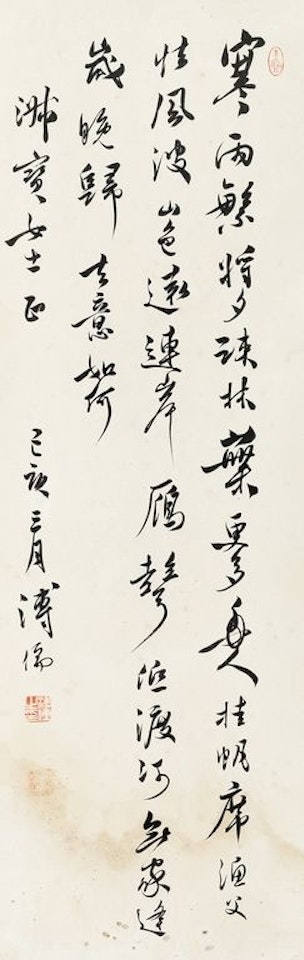 寒雨繁將夕疎林葉更多舟人挂帆席漁父
怯風波山色遠連岸鴈聲低渡河無家逢
歲晚歸去意如何
淑寶女士正
己亥三月溥儒